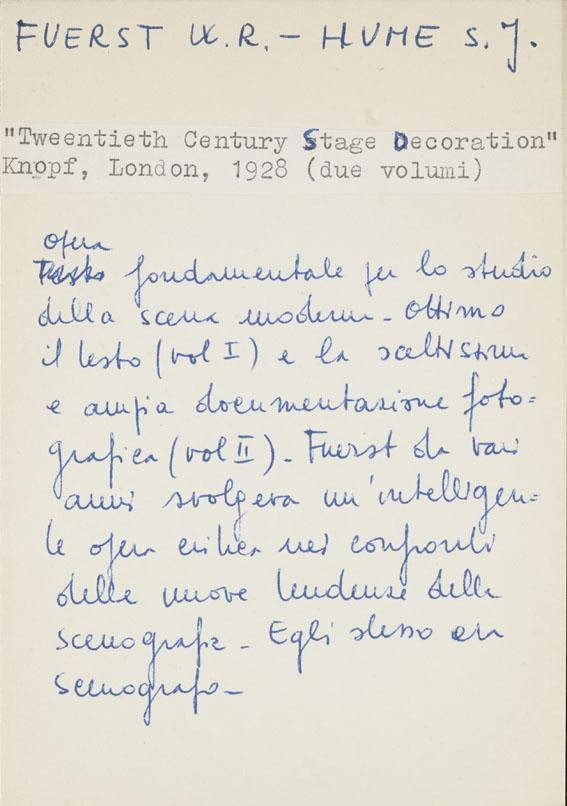 FUERST W.R. – HUME S.J.
"Tweentieth Century Stage Decoration"
Knopf, London, 1928 (due volumi)
opera
Testo fondamentale per lo studio
della scena moderna – Ottimo
il testo (vol I) e la sceltissima
e ampia documentazione foto=
grafica (vol II) – Fuerst da vari
anni svolgeva un'intelligen=
te opera critica nei confronti
delle nuove tendenze della
scenografia – Egli stesso era
scenografo –